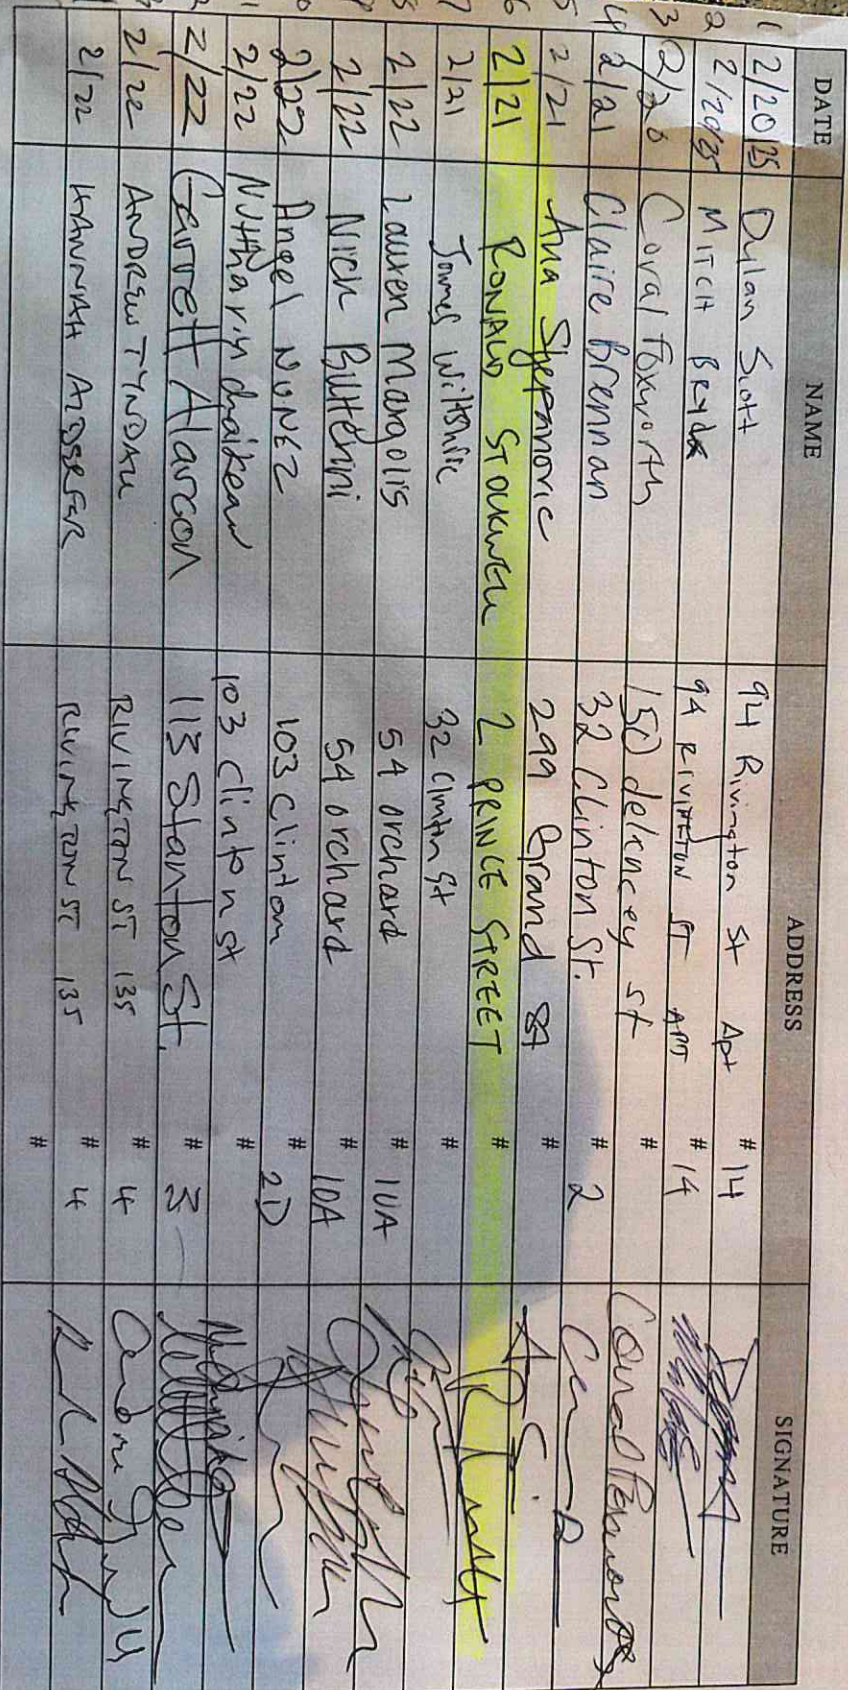 DATE NAME ADDRESS SIGNATURE
1 2/20/25 Dylan Scott 94 Rivington St Apt # 14
2 2/20/25 MITCH 94 RIVINGTON ST APT # 14
3 2/20 Coral Foxworth 150 delancey st #
4 2/21 Claire Brennan 32 Clinton St. # 2
5 2/21 Ana 299 Grand St #
6 2/21 RONALD STOCKWELL 2 PRINCE STREET #
7 2/21 James Wiltshire 32 Clinton St #
8 2/22 Lauren Margolis 54 orchard # 10A
9 2/22 Nick 54 orchard # 10A
2/22 Angel NUNEZ 103 Clinton # 2D
2/22 103 Clinton st #
2/22 Garrett Alarcon 113 Stanton St. # 3
2/22 ANDREW TYNDALL RIVINGTON ST 135 # 4
2/22 HANNAH ALDERFER RIVINGTON ST 135 # 4
#